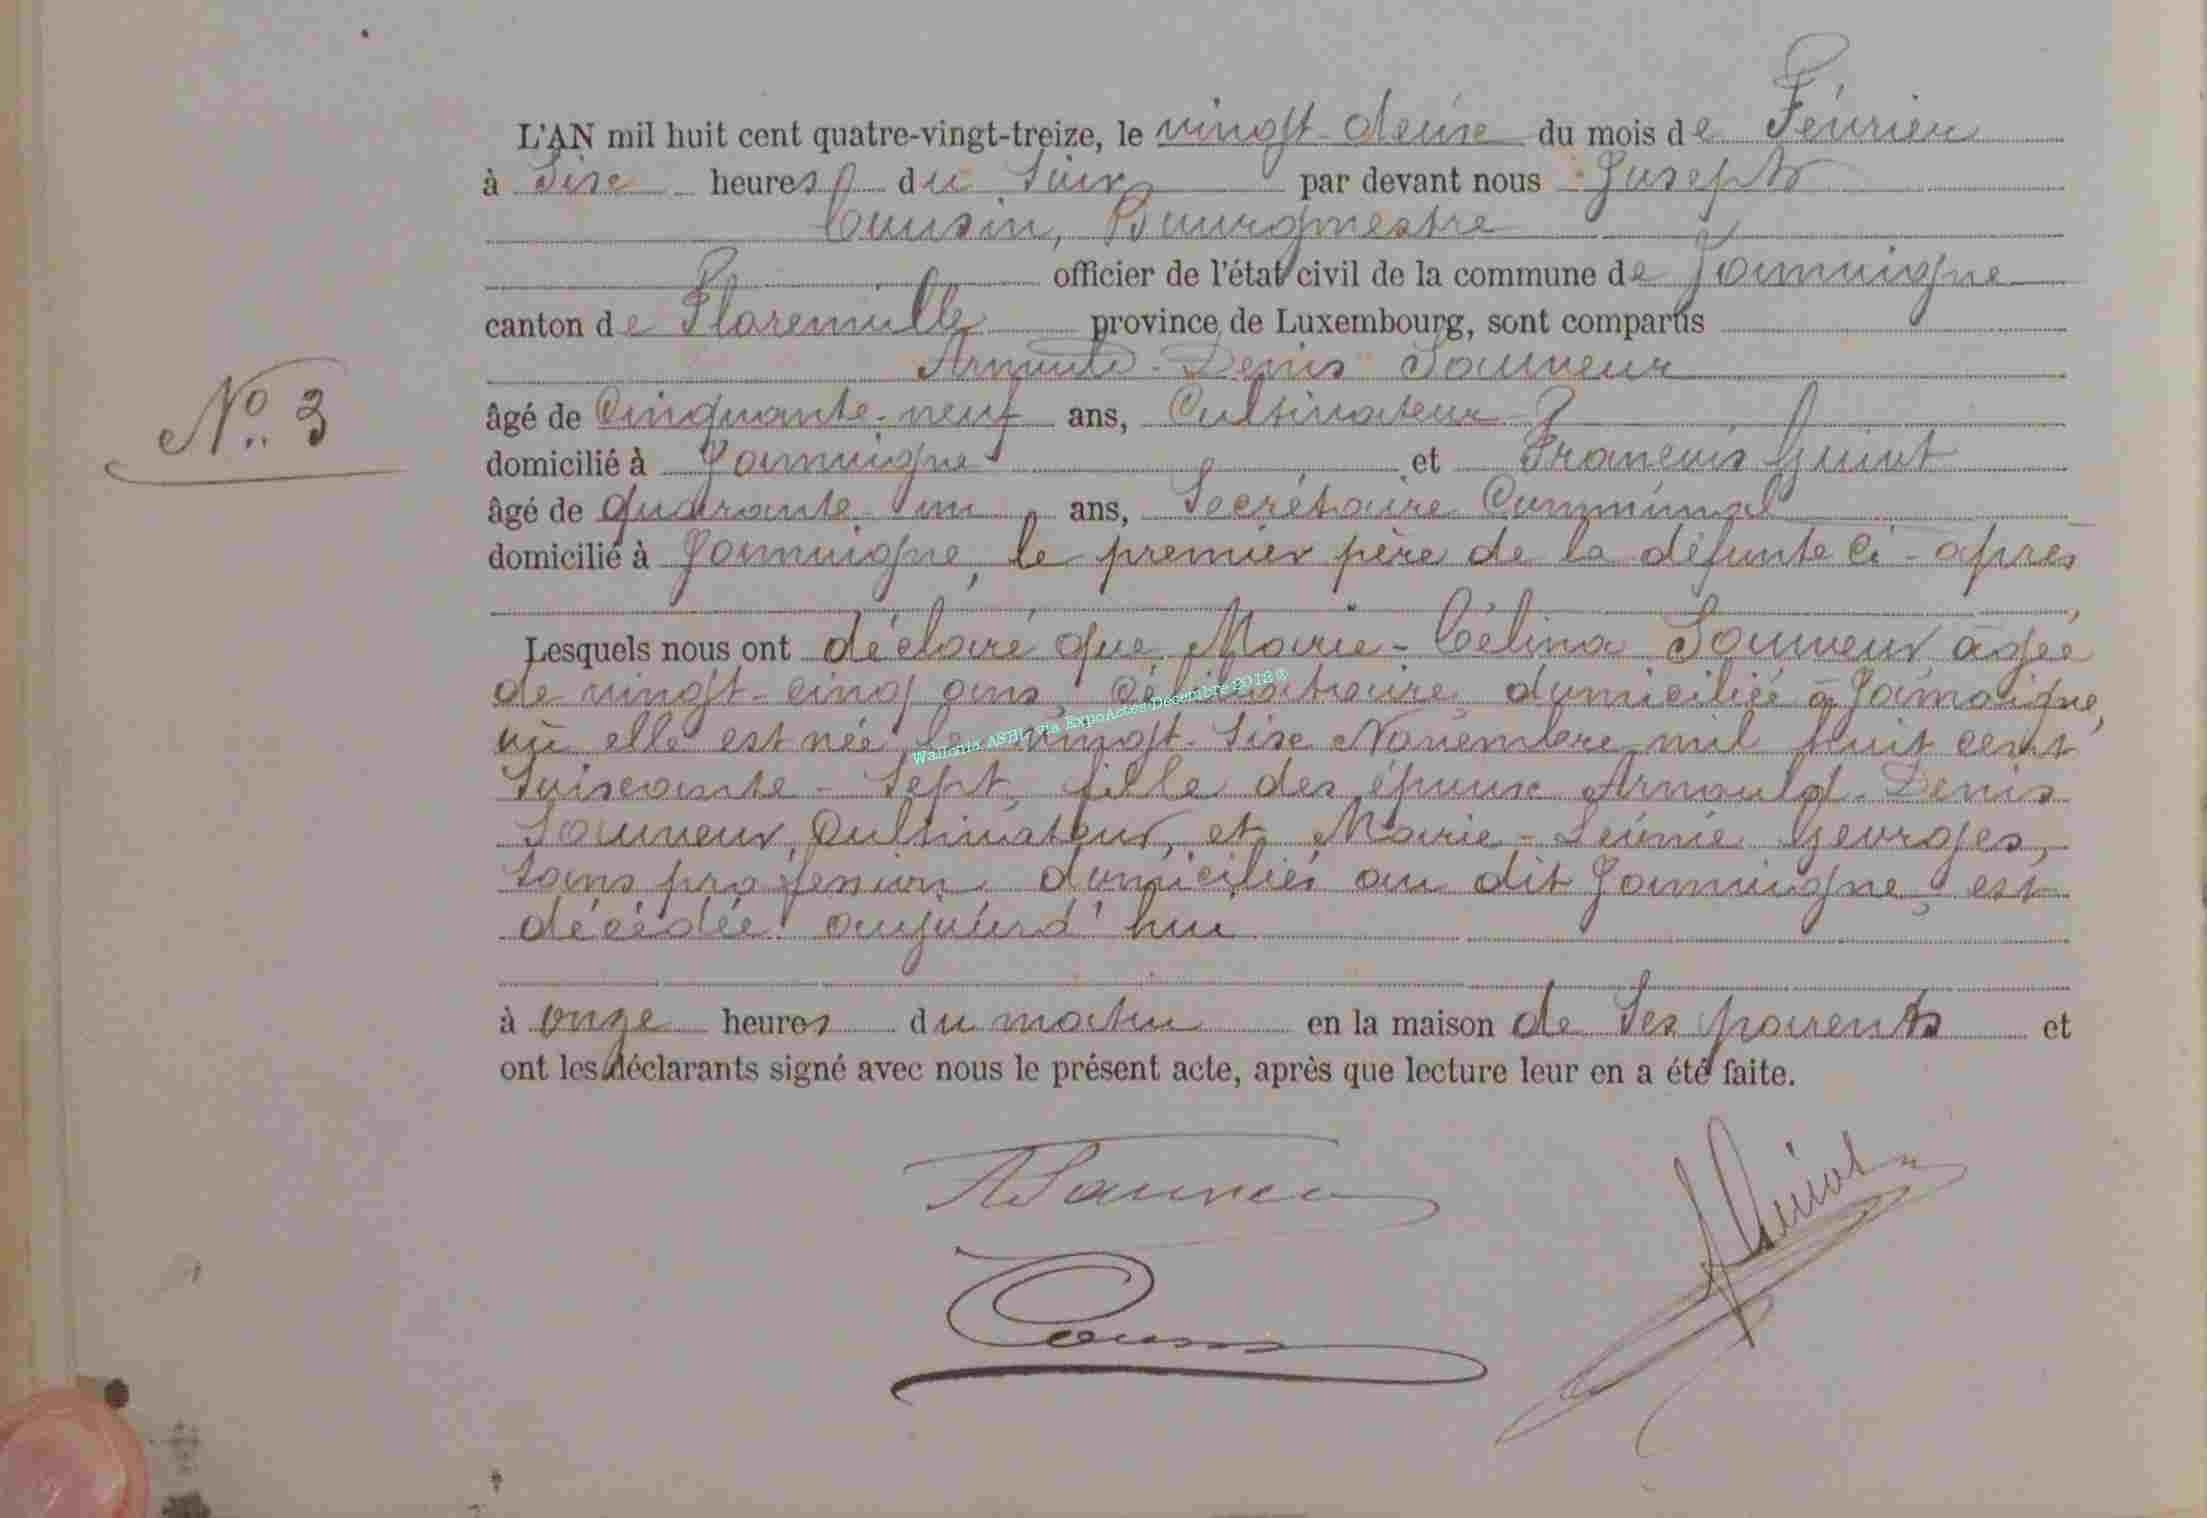 L'AN mil huit cent quatre-vingt-treize, le vingt-deux du mois de Février
à Six heures du Soir par devant nous Joseph
Cousin, Bourgmestre
officier de l'état civil de la commune de Jamoigne
canton de Florenville province de Luxembourg, sont comparus
Arnould-Denis Sauveur
âgé de Cinquante-neuf ans, Cultivateur
domicilié à Jamoigne et François Guiot
âgé de quarante un ans, Secrétaire Communal
domicilié à Jamoigne, le premier père de la défunte ci-après
N° 3
Lesquels nous ont déclaré que Marie-Célina Sauveur, agée
de vingt-cinq ans, Célibataire, domiciliée à Jamoigne,
où elle est née, le vingt-Six Novembre mil huit cent
Soixante-Sept, fille des époux Arnould-Denis
Sauveur, Cultivateur, et Marie- Georges,
Sans profession, domiciliés au dit Jamoigne, est
décédée aujourd'hui
à onze heures du matin en la maison de Ses parents et
ont les déclarants signé avec nous le présent acte, après que lecture leur en a été faite.
ASauveur
FGuiot
Cousin
Wallonia ASBL, via ExpoActes Décembre 2012 ©